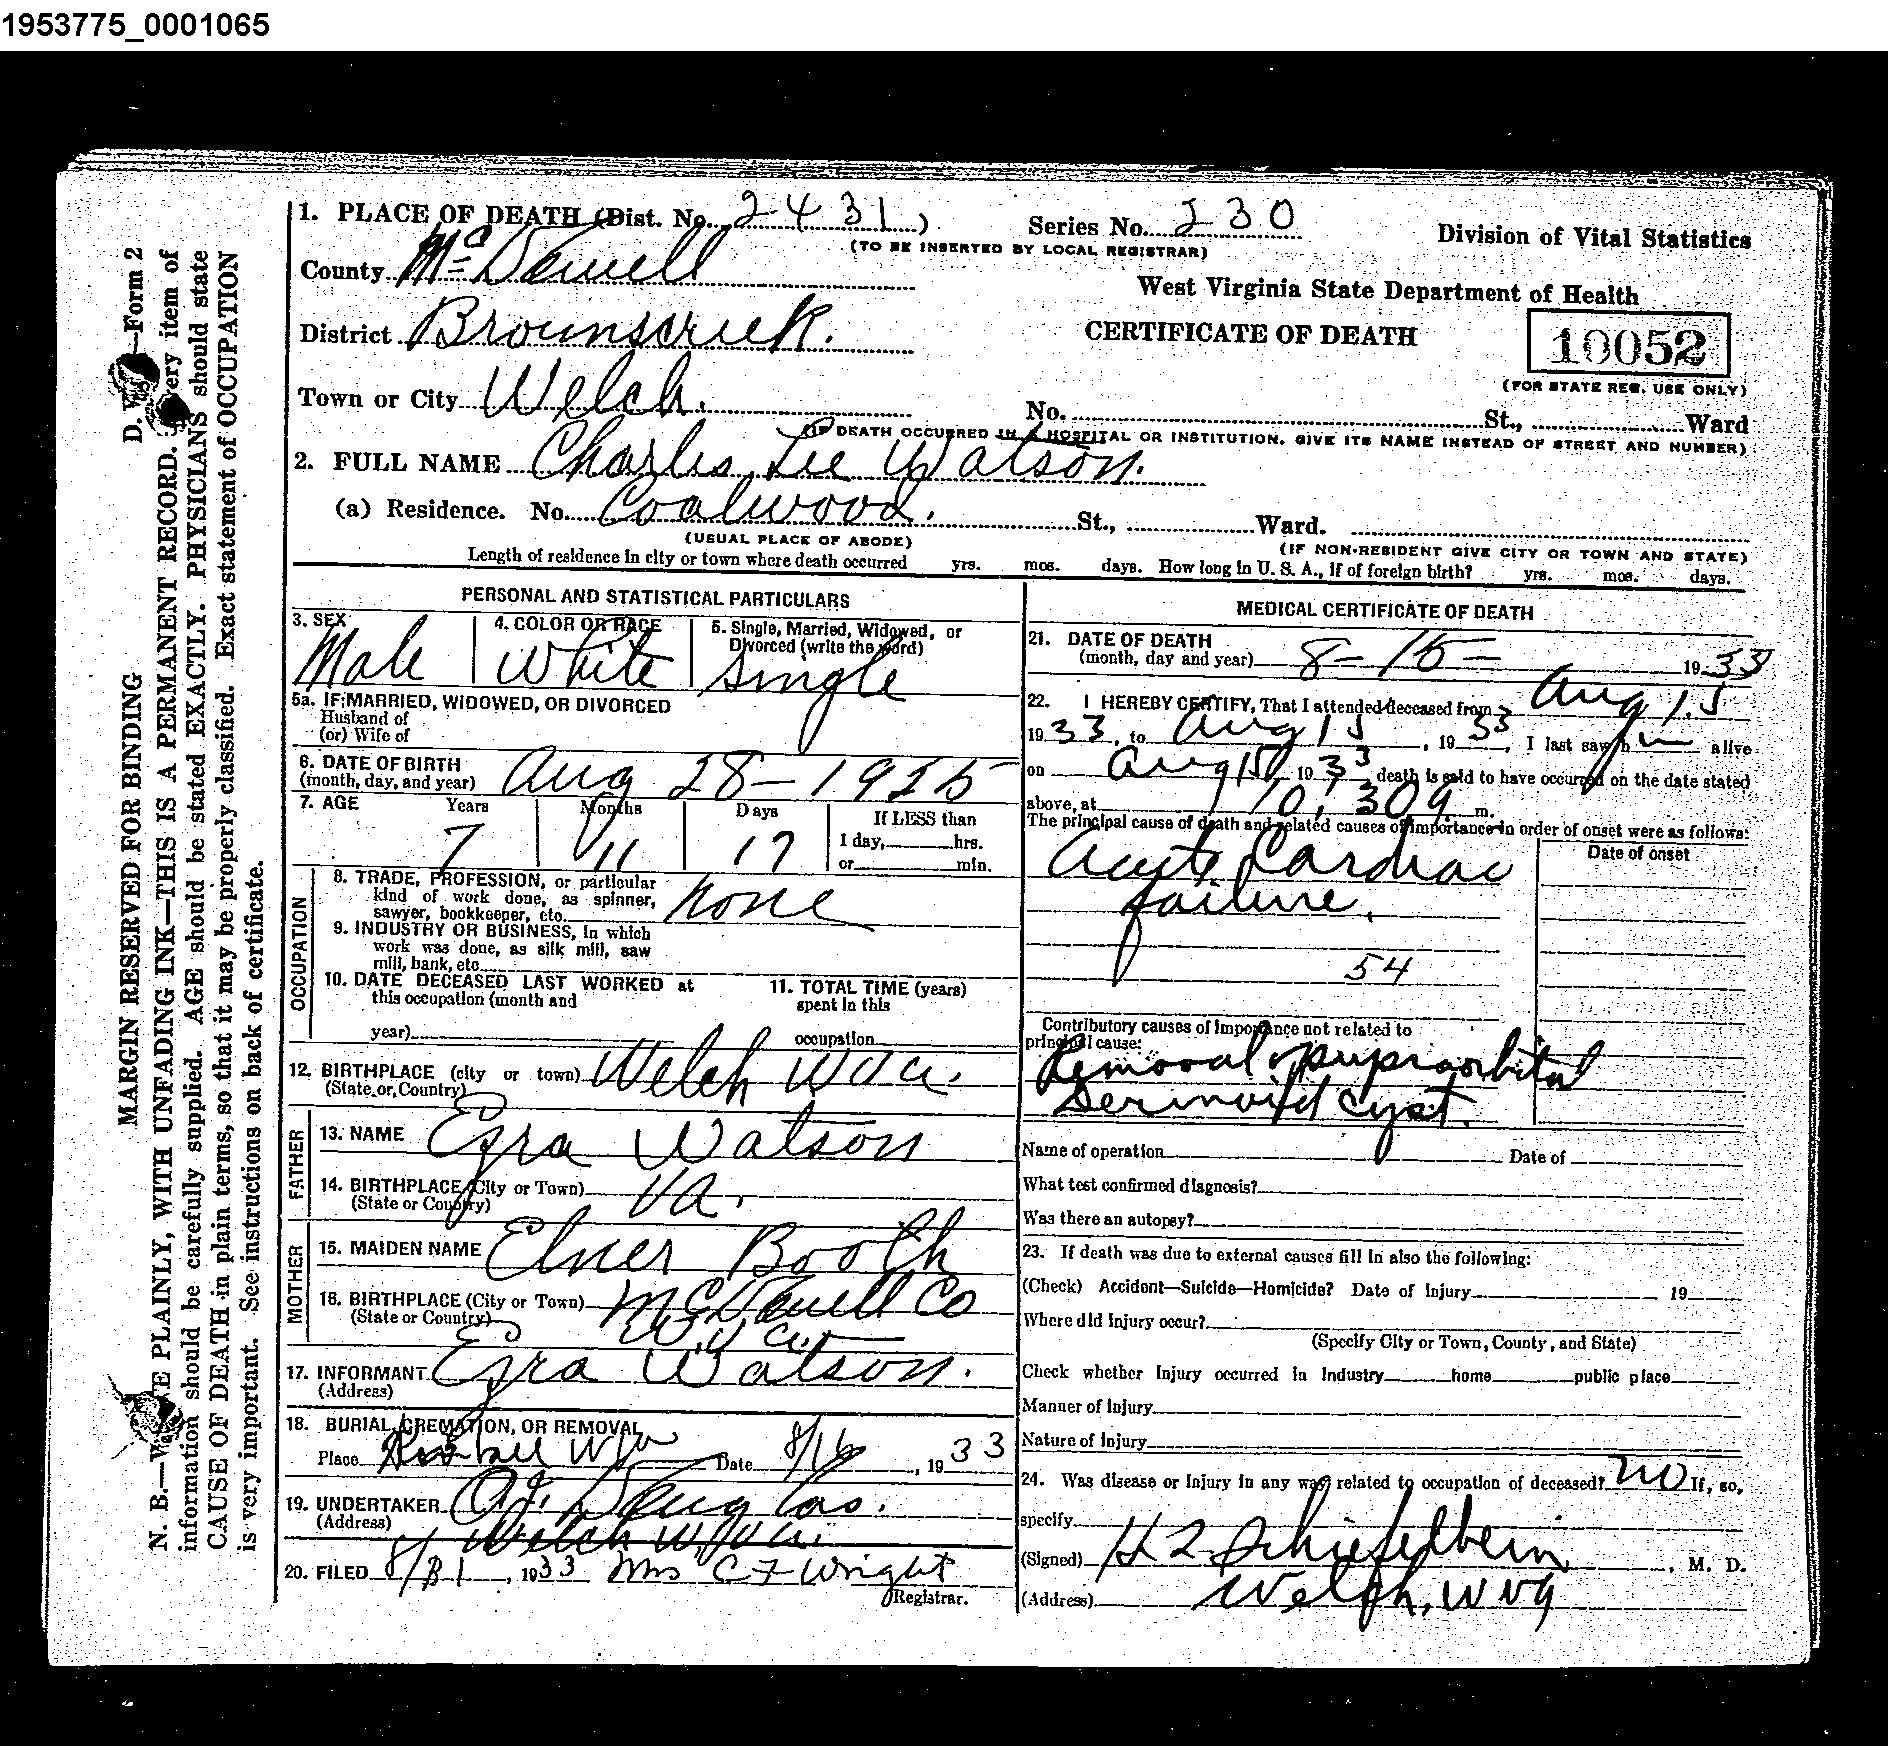 1953775_0001065
1. PLACE OF DEATH (Dist. No. 2431)
Series No. 230
(TO BE INSERTED BY LOCAL REGISTRAR)
Division of Vital Statistics
County McDowell
West Virginia State Department of Health
District Brownscreek.
CERTIFICATE OF DEATH
10052
(FOR STATE REG. USE ONLY)
Town or City Welch.
No. St., Ward
(IF DEATH OCCURRED IN A HOSPITAL OR INSTITUTION, GIVE ITS NAME INSTEAD OF STREET AND NUMBER)
2. FULL NAME Charles Lee Watson.
(a) Residence. No. Coalwood. St., Ward.
(USUAL PLACE OF ABODE)
(IF NON-RESIDENT GIVE CITY OR TOWN AND STATE)
Length of residence in city or town where death occurred yrs. mos. days. How long in U. S. A., if of foreign birth? yrs. mos. days.
PERSONAL AND STATISTICAL PARTICULARS
3. SEX
Male
4. COLOR OR RACE
White
5. Single, Married, Widowed, or
Divorced (write the word)
Single
5a. IF MARRIED, WIDOWED, OR DIVORCED
Husband of
(or) Wife of
6. DATE OF BIRTH
(month, day, and year) Aug 28-1925
7. AGE Years Months Days If LESS than
7 11 17 1 day, hrs.
or min.
OCCUPATION
8. TRADE, PROFESSION, or particular
kind of work done, as spinner,
sawyer, bookkeeper, etc. none
9. INDUSTRY OR BUSINESS, in which
work was done, as silk mill, saw
mill, bank, etc.
10. DATE DECEASED LAST WORKED at
this occupation (month and
year)
11. TOTAL TIME (years)
spent in this
occupation
12. BIRTHPLACE (city or town) Welch W Va.
(State or Country)
FATHER
13. NAME Ezra Watson
14. BIRTHPLACE (City or Town) Va.
(State or Country)
MOTHER
15. MAIDEN NAME Elner Booth
16. BIRTHPLACE (City or Town) McDowell Co
(State or Country) W. Va.
17. INFORMANT Ezra Watson.
(Address)
18. BURIAL, CREMATION, OR REMOVAL
Place W Va Date 8/16, 1933
19. UNDERTAKER
(Address) Welch W. Va.
20. FILED 8/31, 1933 Mrs C F Wright
Registrar.
MEDICAL CERTIFICATE OF DEATH
21. DATE OF DEATH
(month, day and year) 8-15- 1933
22. I HEREBY CERTIFY, That I attended deceased from Aug 15
1933, to Aug 15, 1933, I last saw h alive
on Aug 15, 1933, death is said to have occurred on the date stated
above, at 10:30 a m.
The principal cause of death and related causes of importance in order of onset were as follows:
Date of onset
Acute Cardiac
failure.
54
Contributory causes of importance not related to
principal cause:
Removal of supraorbital
Dermoid cyst.
Name of operation Date of
What test confirmed diagnosis?
Was there an autopsy?
23. If death was due to external causes fill in also the following:
(Check) Accident—Suicide—Homicide? Date of Injury 19
Where did injury occur?
(Specify City or Town, County, and State)
Check whether Injury occurred in Industry home public place
Manner of Injury
Nature of Injury
24. Was disease or Injury in any way related to occupation of deceased? no If, so,
specify
(Signed) H L Schiefelbein, M. D.
(Address) Welch, W Va
D. V. —Form 2
MARGIN RESERVED FOR BINDING
N. B.—WRITE PLAINLY, WITH UNFADING INK—THIS IS A PERMANENT RECORD. Every item of
information should be carefully supplied. AGE should be stated EXACTLY. PHYSICIANS should state
CAUSE OF DEATH in plain terms, so that it may be properly classified. Exact statement of OCCUPATION
is very important. See instructions on back of certificate.